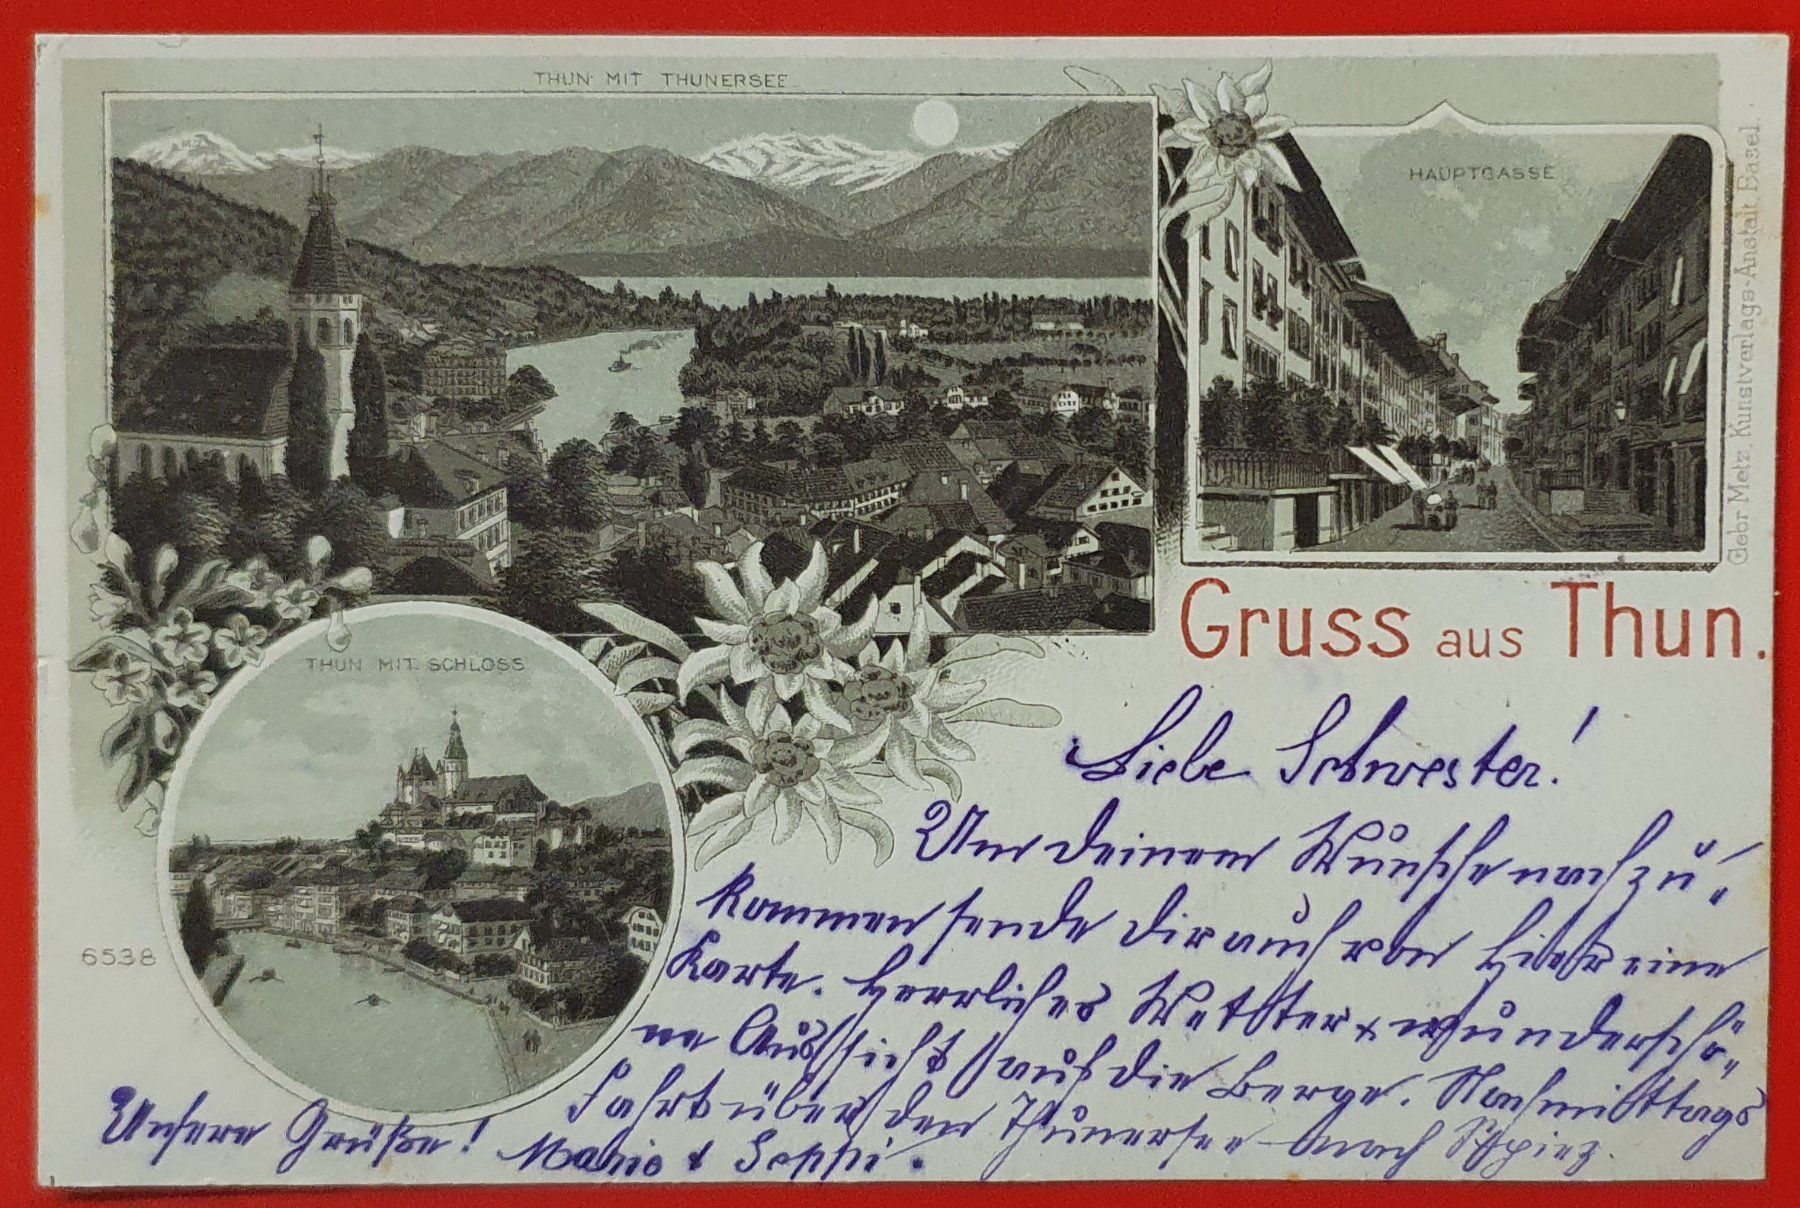 THUN MIT THUNERSEE
HAUPTGASSE
Gebr Metz, Kunstverlags-Anstalt, Basel.
Gruss aus Thun.
THUN MIT SCHLOSS
6538
Liebe Schwester!
Um deinem Wunsche nachzu-
kommen sende dir auch von hier eine
Karte. Herrliches Wetter + wunderschö-
ne Aussicht auf die Berge. Nachmittags
Fahrt über den Thunersee nach Spiez.
Unsere Grüße!
Marie & Seppi.